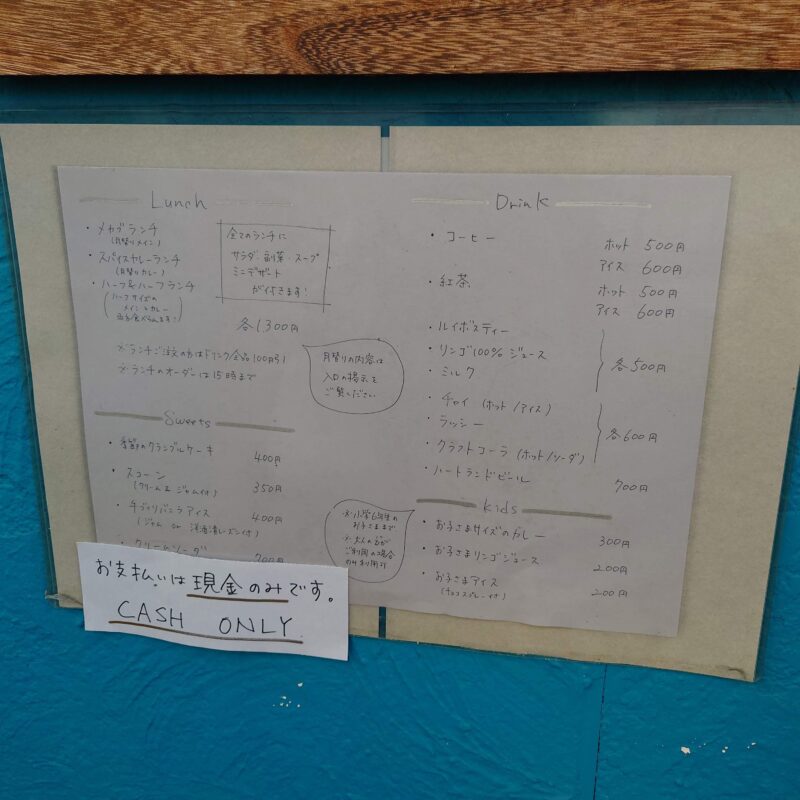 Lunch
・メカブランチ
(月替りメイン)
・スパイスカレーランチ
(月替りカレー)
・ハーフ&ハーフランチ
(ハーフサイズの
メインとカレー
両方食べられます!)
全てのランチに
サラダ・副菜・スープ
ミニデザート
が付きます!
各1,300円
※ランチご注文の方はドリンク全品100円引
※ランチのオーダーは15時まで
月替りの内容は
入口の掲示を
ご覧ください
Sweets
・季節のクランブルケーキ 400円
・スコーン 350円
(クリームとジャム付)
・手づくりバニラアイス 400円
(ジャム or 洋酒漬レーズン付)
・クリームソーダ 700円
お支払いは現金のみです。
CASH ONLY
Drink
・コーヒー ホット 500円
アイス 600円
・紅茶 ホット 500円
アイス 600円
・ルイボスティー
・リンゴ100%ジュース 各500円
・ミルク
・チャイ (ホット/アイス)
・ラッシー 各600円
・クラフトコーラ (ホット/ソーダ)
・ハートランドビール 700円
Kids
※小学6年生の
お子さままで
※大人の方が
ご利用の場合
のみ利用可
・お子さまサイズのカレー 300円
・お子さまリンゴジュース 200円
・お子さまアイス 200円
(チョコスプレー付)